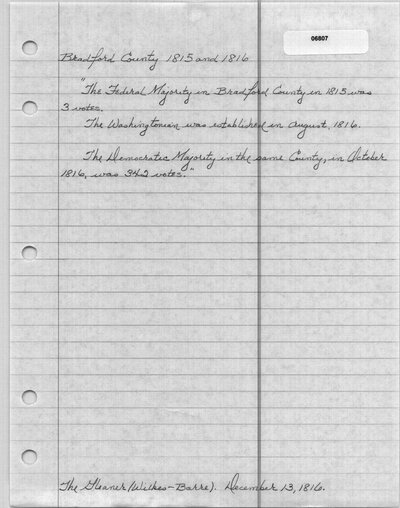 06807
Bradford County 1815 and 1816
"The Federal Majority in Bradford County in 1815 was
3 votes.
The Washingtonian was established in August, 1816.
The Democratic Majority in the same County, in October
1816, was 342 votes."
The Gleaner (Wilkes-Barre). December 13, 1816.